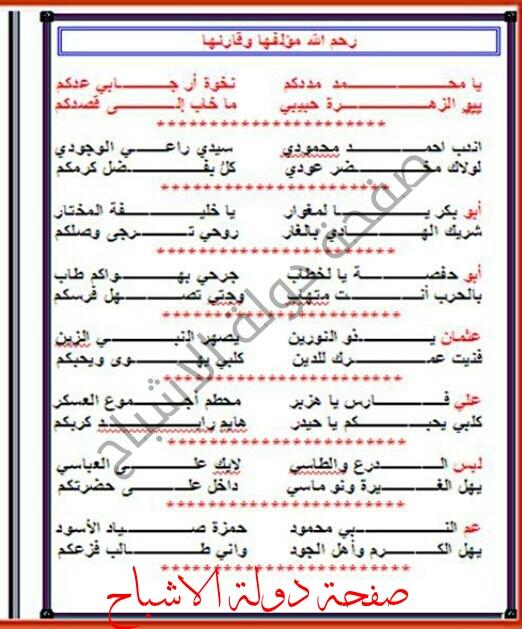 رحم الله مؤلفها وقارنها
يا محـــمد مددكم نخوة أرجـــابي عدكم
ييو الزهـــرة حبيبي ما خاب إلـــى قصدكم
***********************
انْدب احمـــد محمودي سيدي راعـــي الوجودي
لولاك مخـــضر عودي كل بفـــضل كرمكم
***********************
أبو بكر يـــا لمغوار يا خليـــفة المختار
شريك الهـــادي بالغار روحي تـــرجى وصلكم
***********************
أبو حفصـــة يا لخطاب جرحي بهـــواكم طاب
بالحرب أنـــت متهيب وجتي تصـــهل فرسكم
***********************
عثمان يـــذو النورين يصهر النبـــي الزين
فنيت عمـــرك للدين كلبي يهـــوى ويحبكم
***********************
علي فـــارس يا هزبر محطم أجـــموع العسكر
كلبي يحبـــكم يا حيدر هايم رايـــد كربكم
***********************
لبس الـــدرع والطاسي لايك علـــى العباسي
يهل الغـــيرة ونو ماسي داخل علـــى حضرتكم
***********************
عم النـــبي محمود حمزة صـــياد الأسود
يهل الكـــرم وأهل الجود واني طـــالب فزعكم
***********************
صفحة دولة الاشباح
صفحة دولة الاشباح